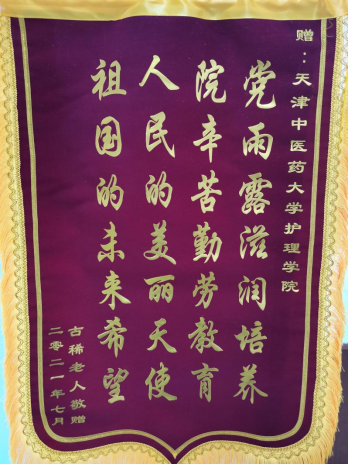 赠：天津中医药大学护理学院
党雨露滋润培养
院辛苦勤劳教育
人民的美丽天使
祖国的未来希望
古稀老人敬赠
二零二一年七月